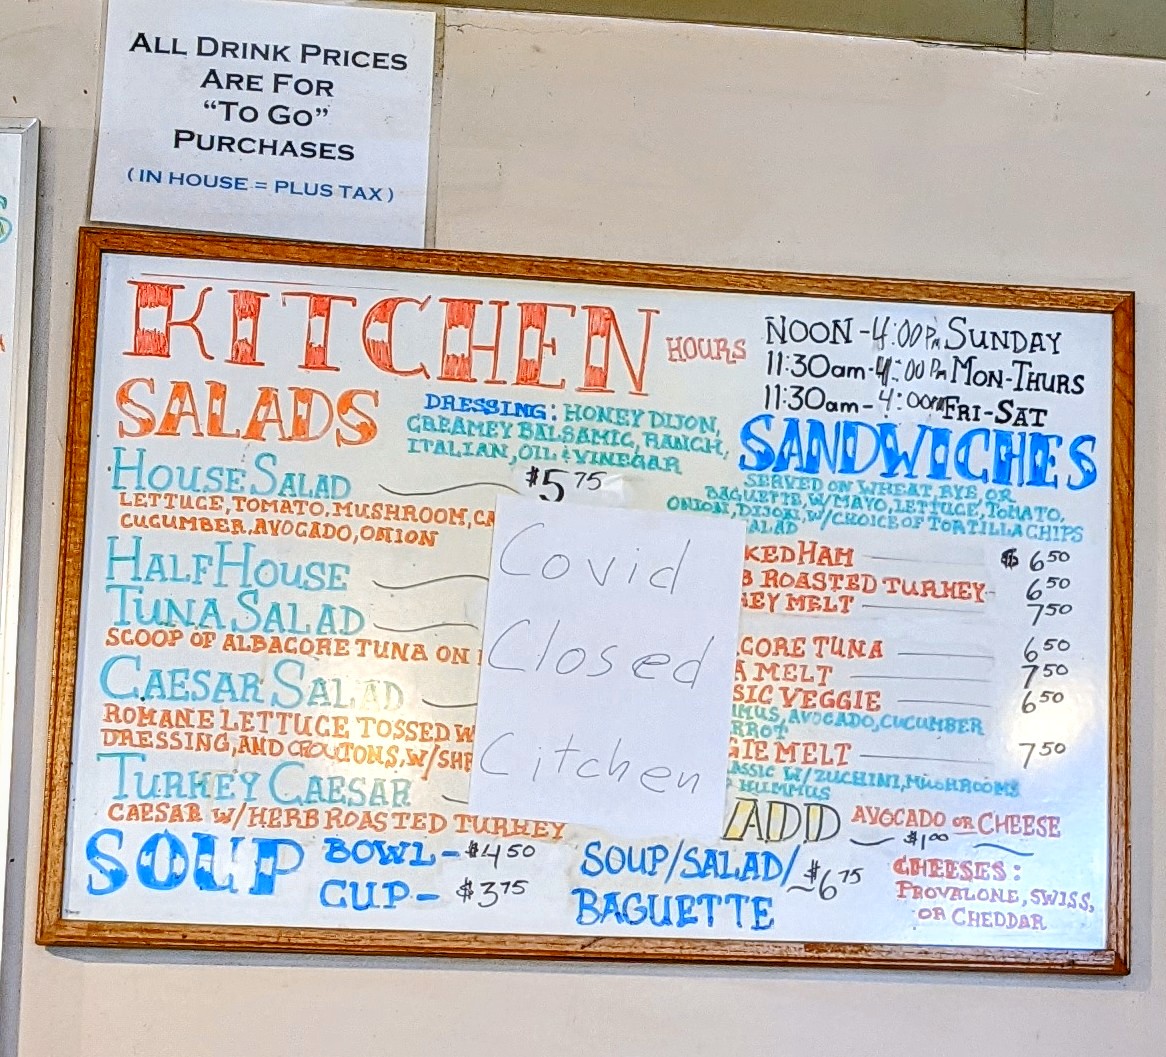 ALL DRINK PRICES
ARE FOR
“TO GO”
PURCHASES
(IN HOUSE = PLUS TAX)
KITCHEN HOURS
NOON - 4:00 Pm SUNDAY
11:30am - 4:00 Pm MON-THURS
11:30am - 4:00pm FRI-SAT
SALADS
DRESSING: HONEY DIJON,
CREAMEY BALSAMIC, RANCH,
ITALIAN, OIL & VINEGAR
HOUSE SALAD $5 75
LETTUCE, TOMATO, MUSHROOM, CA
CUCUMBER, AVOCADO, ONION
HALF HOUSE
TUNA SALAD
SCOOP OF ALBACORE TUNA ON
CAESAR SALAD
ROMANE LETTUCE TOSSED W
DRESSING, AND CROUTONS, W/SHR
TURKEY CAESAR
CAESAR W/HERB ROASTED TURKEY
Covid
Closed
Citchen
SANDWICHES
SERVED ON WHEAT, RYE, OR
BAGUETTE, W/MAYO, LETTUCE, TOMATO,
ONION, DIJON, W/CHOICE OF TORTILLA CHIPS
ALAD
KED HAM $ 6 50
B ROASTED TURKEY - 6 50
EY MELT 7 50
CORE TUNA 6 50
A MELT 7 50
SIC VEGGIE 6 50
MUS, AVOCADO, CUCUMBER
RROT
GIE MELT 7 50
ASSIC W/ZUCHINI, MUSHROOMS
HUMMUS
ADD AVOCADO OR CHEESE
$1 00
SOUP BOWL - $4 50
CUP - $3 75
SOUP/SALAD/
BAGUETTE
$6 75
CHEESES:
PROVALONE, SWISS,
OR CHEDDAR